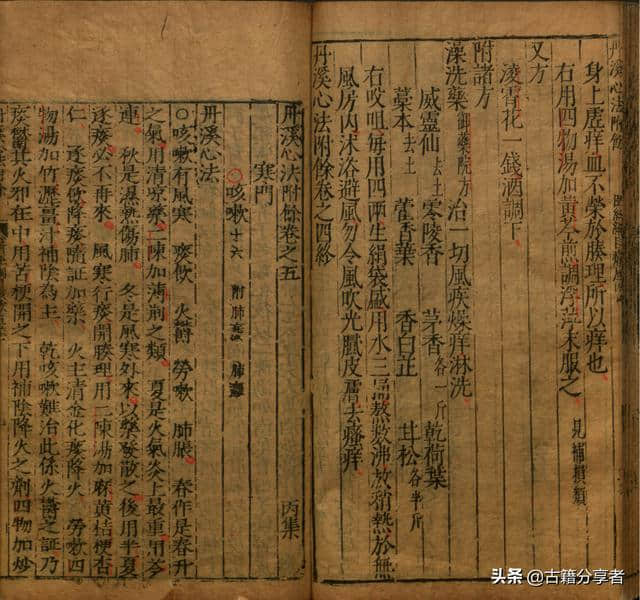 丹溪心法附餘
身上虛痒血不榮於腠理所以痒也
右用四物湯加黃芩煎調浮萍末服之 見補損類
又方
凌霄花一錢酒調下
附諸方
澡洗藥 御藥院方 治一切風疾燥痒淋洗
威靈仙 去土 零陵香 茅香 各一斤 乾荷葉
藁本 去土 藿香葉 香白芷 甘松 各半斤
右㕮咀每用四兩生絹袋盛用水三桶熬數沸放稍熱於無
風房內沐浴避風勿令風吹光膩皮膚去瘙痒
丹溪心法附餘卷之四終
丹溪心法附餘卷之五 丙集
寒門
○咳嗽十六 附肺痿 肺癰
丹溪心法
○咳嗽有風寒 痰飲 火鬱 勞嗽 肺脹 春作是春升
之氣用清凉藥二陳加薄荊之類 夏是火氣炎上最重用芩
連 秋是濕熱傷肺 冬是風寒外來以藥發散之後用半夏
逐痰必不再來 風寒行痰開腠理用二陳湯加麻黃桔梗杏
仁 逐痰飲降痰隨証加藥 火主清金化痰降火 勞嗽四
物湯加竹瀝薑汁補陰為主 乾咳嗽難治此係火鬱之証乃
痰鬱其火邪在中用苦梗開之下用補陰降火之劑四物加炒
1
头条 @古籍分享者